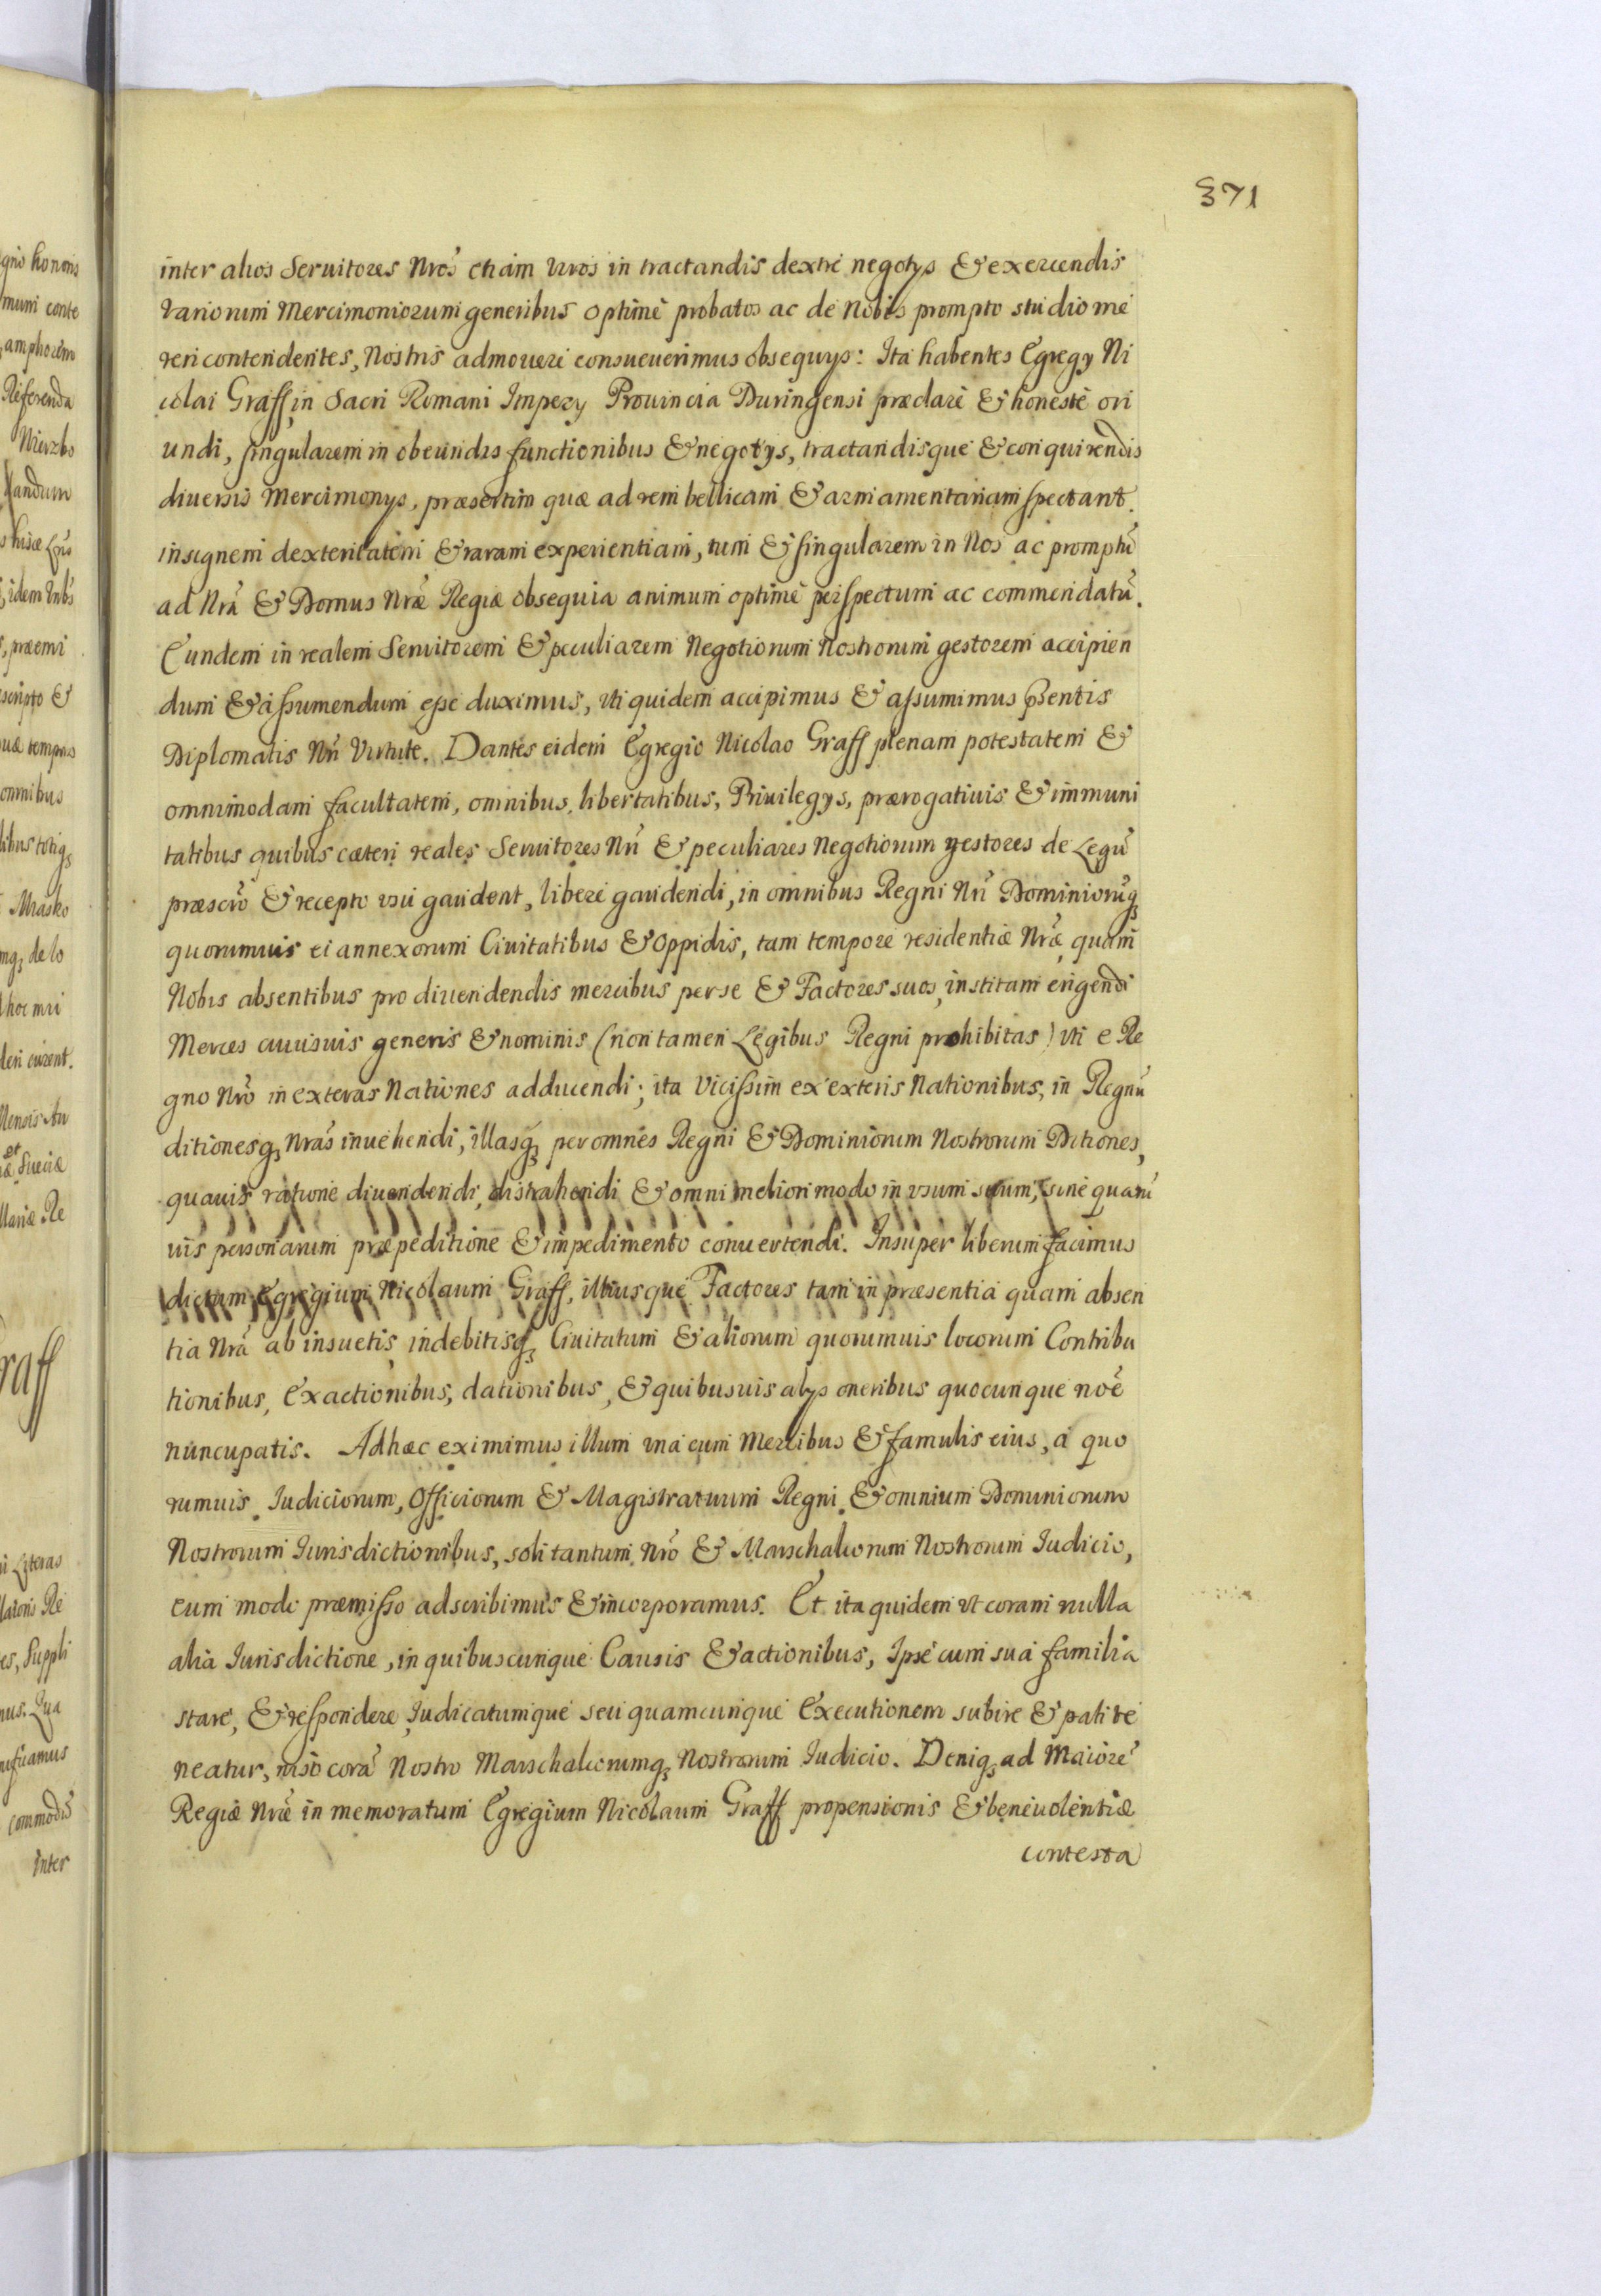 371
inter alios Seruitores Nrõs etiam viros in tractandis dextrè negotys & exercendis
variorum Mercimoniorum generibus optimè probatos ac de Nobis prompto studio me
reri contendentes, Nostris admoueri consueuerimus obsequys: Ita habentes Egregy Ni
colai Graff in Sacri Romani Impery Prouincia Duringensi præclarè & honestè ori
undi, singularem in obeundis functionibus & negotys, tractandisque & conquirendis
diuersis Mercimonys, præsertim quæ ad rem bellicam & armamentariam spectant.
insignem dexteritatem & raram experientiam, tum & singularem in Nos ac promptũ
ad Nrã & Domus Nræ̃ Regiæ obsequia animum optimè perspectum ac commendatũ.
Eundem in realem Seruitorem & peculiarem Negotiorum Nostrorum gestorem accipien
dum & assumendum esse duximus, vti quidem accipimus & assumimus pñtis
Diplomatis Nrĩ Virtute. Dantes eidem Egregio Nicolao Graff plenam potestatem &
omnimodam facultatem, omnibus, libertatibus, Priuilegys, prærogatiuis & immuni
tatibus quibus cæteri reales Seruitores Nrĩ & peculiares Negotiorum gestores de Legũ
præscrõ & recepto vsu gaudent, liberè gaudendi, in omnibus Regni Nrĩ Dominiorũq;
quorumuis ei annexorum Ciuitatibus & Oppidis, tam tempore residentiæ Nræ̃, quam
Nobis absentibus pro diuendendis mercibus per se & Factores suos, institam erigendi
Merces cuiusuis generis & nominis (non tamen Legibus Regni prohibitas) vti e Re
gno Nrõ in exteras Nationes adducendi; ita vicissim ex exteris Nationibus, in Regnũ
ditionesq; Nrãs inuehendi, illasq; per omnes Regni & Dominiorum Nostrorum Ditiones,
quauis ratione diuendendi, distrahendi & omni meliori modo in vsum suum, sine quarũ
uis personarum præpeditione & impedimento conuertendi. Insuper liberum facimus
dictum Egregium Nicolaum Graff, illiusque Factores tam in præsentia quam absen
tia Nrã ab insuetis indebitisq; Ciuitatum & aliorum quorumuis locorum Contribu
tionibus, Exactionibus, dationibus, & quibusuis alys oneribus quocunque noẽ
nuncupatis. Adhæc eximimus illum vna cum Mercibus & famulis eius, a quo
rumuis Iudiciorum, Officiorum & Magistratuum Regni & omnium Dominiorum
Nostrorum Iurisdictionibus, soli tantum Nrõ & Marschalcorum Nostrorum Iudicio,
eum modo præmisso adscribimus & incorporamus. Et ita quidem vt coram nulla
alia Iurisdictione, in quibuscunque Causis & actionibus, Ipse cum sua familia
stare, & respondere Iudicatumque seu quamcunque Executionem subire & pati te
neatur, nisi corã Nostro Marschalcorumq; Nostrorum Iudicio. Deniq; ad Maiorẽ
Regiæ Nræ̃ in memoratum Egregium Nicolaum Graff propensionis & beneuolentiæ
contesta